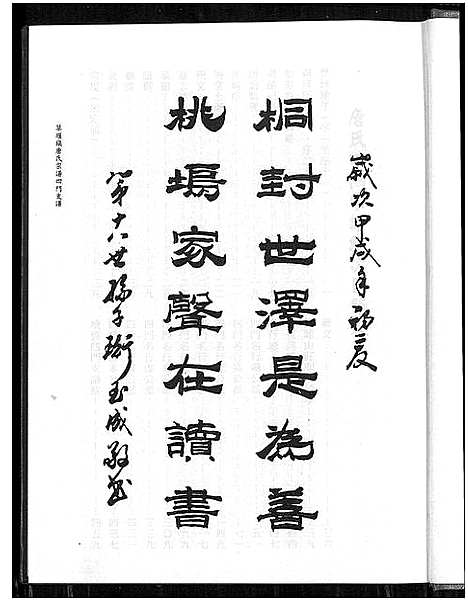 歲次甲戌年初夏
桐封世澤是為善
桃塢家聲在讀書
第十八世孫子衡玉成敬書
華墅鎮唐氏宗譜四門支譜